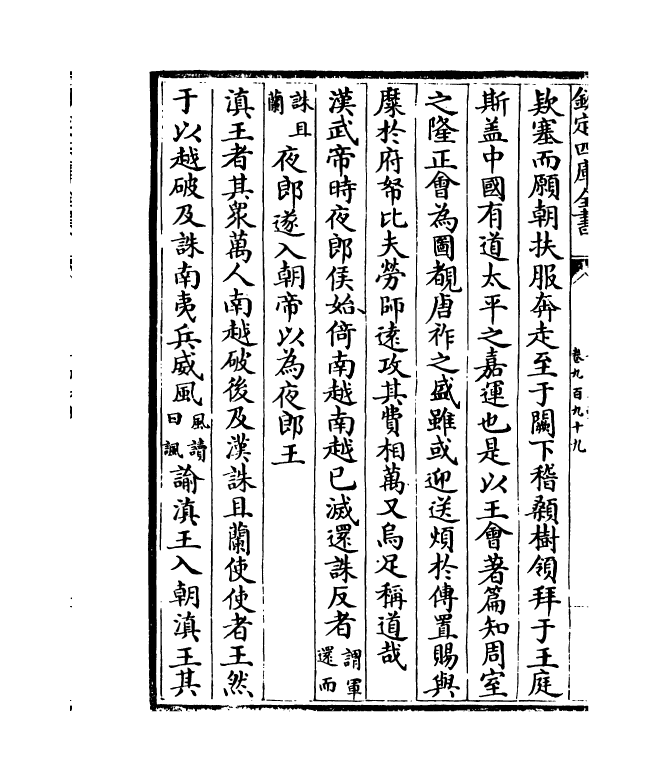 欽定四庫全書
卷九百九十九
欵塞而願朝扶服奔走至于闕下稽顙樹頷拜于王庭
斯盖中國有道太平之嘉運也是以王㑹著篇知周室
之隆正㑹為圖覩唐祚之盛雖或迎送煩於傳置賜與
糜於府帑比夫勞師逺攻其費相萬又烏足稱道哉
漢武帝時夜郎侯始倚南越南越已滅還誅反者謂軍還而
誅且蘭夜郎遂入朝帝以為夜郎王
滇王者其衆萬人南越破後及漢誅且蘭使使者王然
于以越破及誅南夷兵威風風讀曰諷諭滇王入朝滇王其